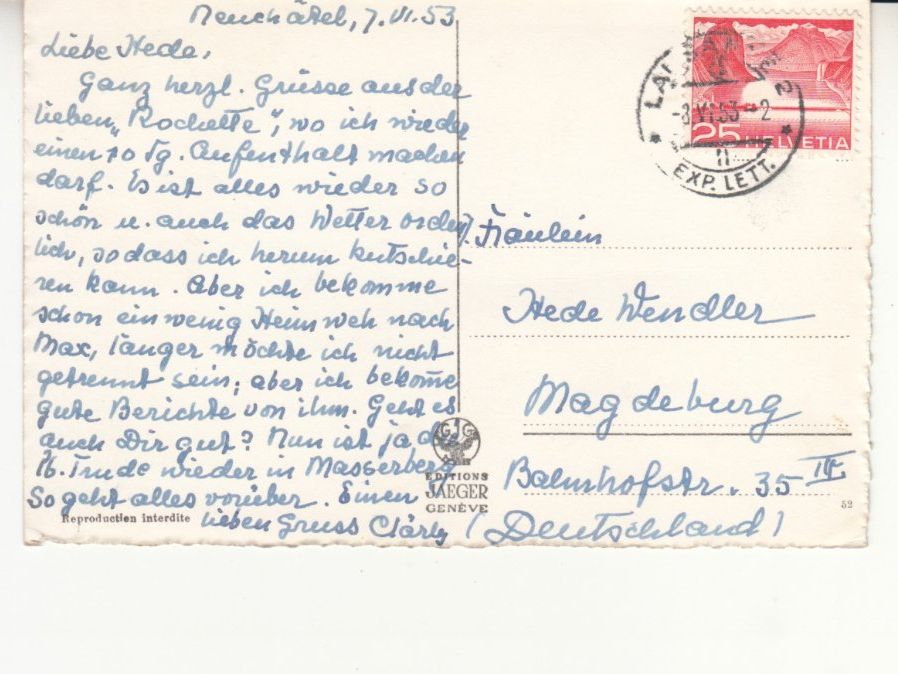 Neuchâtel, 7. VI. 53
Liebe Hede,
Ganz herzl. Grüsse aus der
lieben "Rochette", wo ich wieder
einen 10 Tg. Aufenthalt machen
darf. Es ist alles wieder so
schön u. auch das Wetter ordent-
lich, sodass ich herum kutschie-
ren kann. Aber ich bekomme
schon ein wenig Heimweh nach
Max, länger möchte ich nicht
getrennt sein; aber ich bekom̅e
gute Berichte von ihm. Geht es
auch Dir gut? Nun ist ja d.
lb. Trude wieder in Masserberg
So geht alles vorüber. Einen
lieben Gruss Cläry
Reproduction interdite
GJG
EDITIONS
JAEGER
GENÈVE
LA
-8.VI.53-2
2
II
EXP. LETT.
25 HELVETIA
Fräulein
Hede Wendler
Magdeburg
Bahnhofstr. 35 IV
(Deutschland)
52